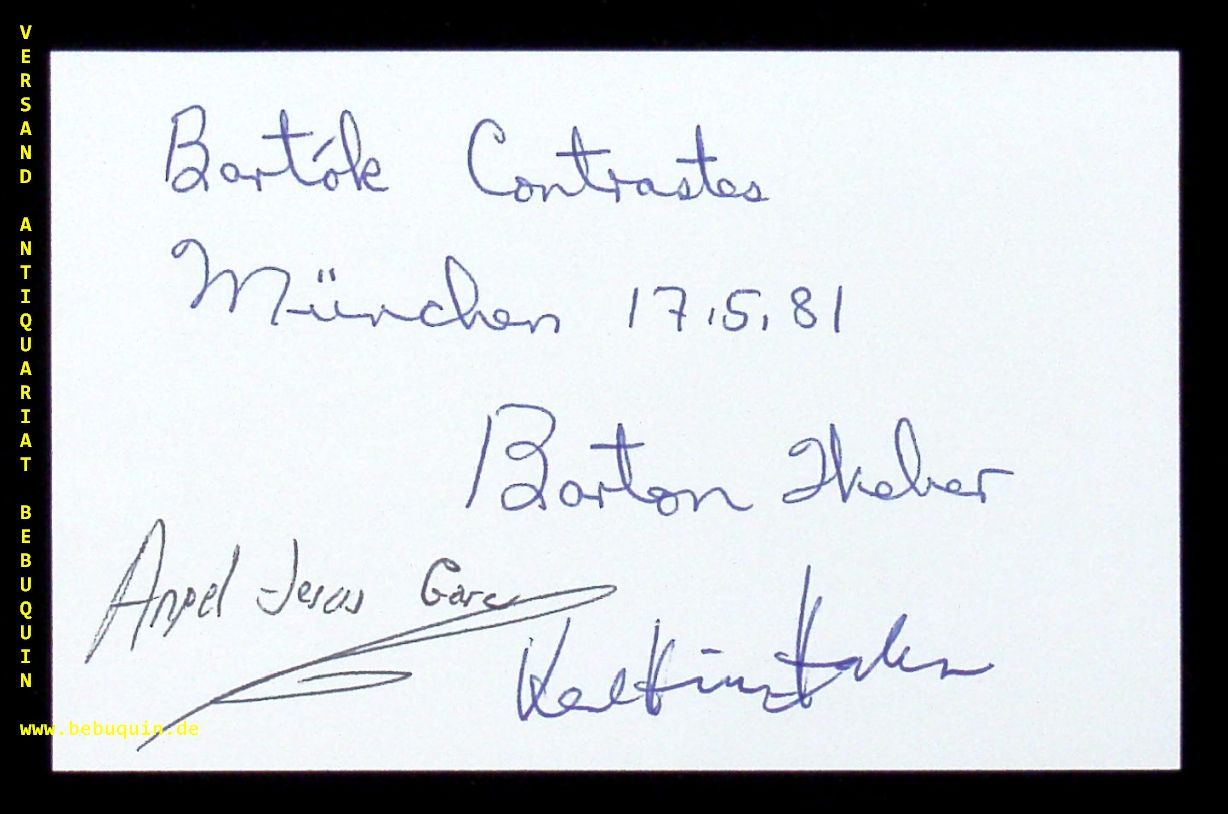 VERSAND ANTIQUARIAT BEBUQUIN
www.bebuquin.de
Bartók Contrastes
München 17.5.81
Barton
Angel Jesus Garc